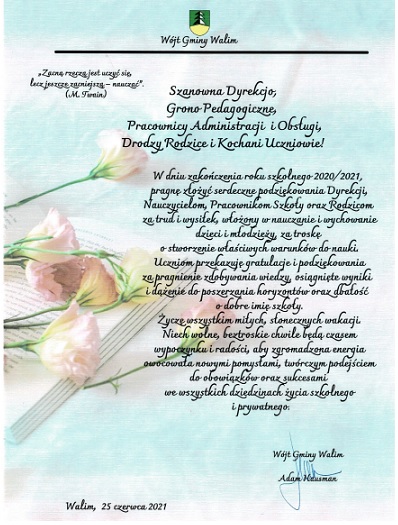 Wójt Gminy Walim
„Zacną rzeczą jest uczyć się,
lecz jeszcze zacniejszą – nauczać”.
(M. Twain)
Szanowna Dyrekcjo,
Grono Pedagogiczne,
Pracownicy Administracji i Obsługi,
Drodzy Rodzice i Kochani Uczniowie!
W dniu zakończenia roku szkolnego 2020/2021,
pragnę złożyć serdeczne podziękowania Dyrekcji,
Nauczycielom, Pracownikom Szkoły oraz Rodzicom
za trud i wysiłek, włożony w nauczanie i wychowanie
dzieci i młodzieży, za troskę
o stworzenie właściwych warunków do nauki.
Uczniom przekazuję gratulacje i podziękowania
za pragnienie zdobywania wiedzy, osiągnięte wyniki
i dążenie do poszerzania horyzontów oraz dbałość
o dobre imię szkoły.
Życzę wszystkim miłych, słonecznych wakacji.
Niech wolne, beztroskie chwile będą czasem
wypoczynku i radości, aby zgromadzona energia
owocowała nowymi pomysłami, twórczym podejściem
do obowiązków oraz sukcesami
we wszystkich dziedzinach życia szkolnego
i prywatnego.
Wójt Gminy Walim
Adam Hausman
Walim, 25 czerwca 2021